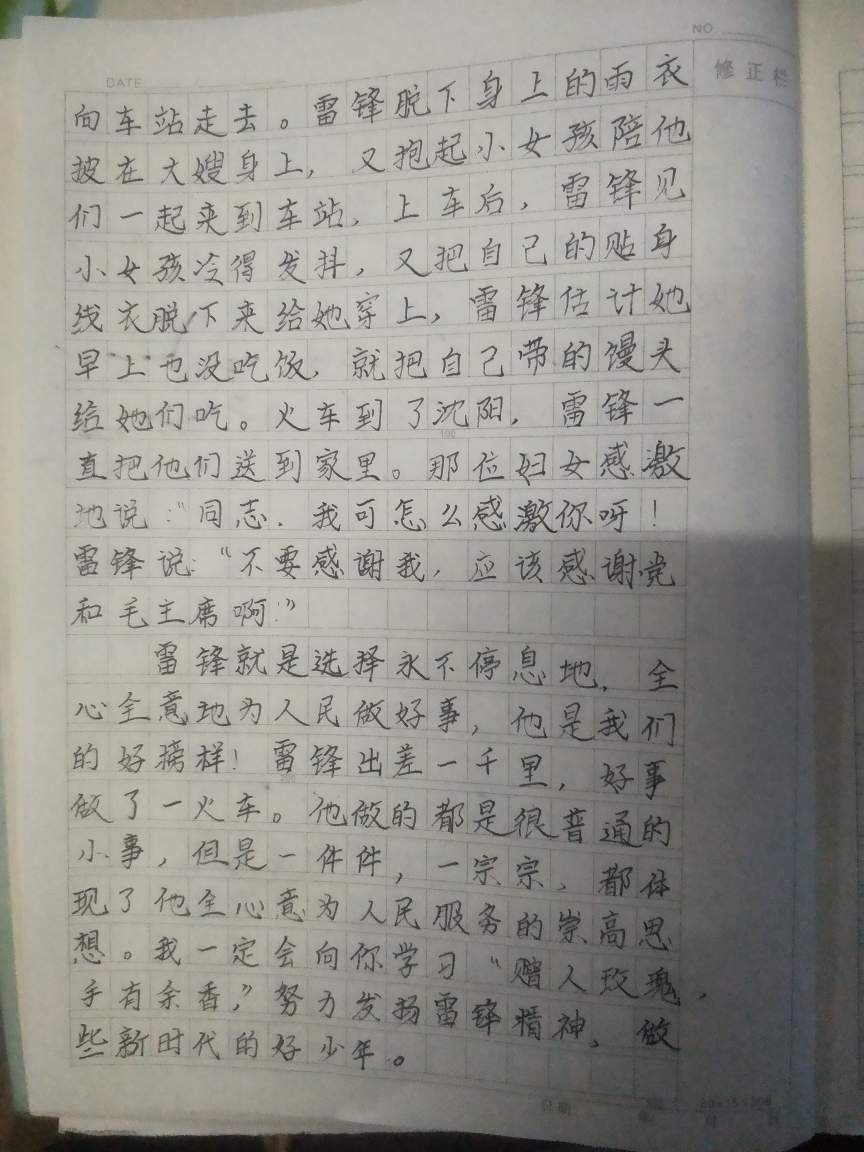 NO
DATE
修正栏
向车站走去。雷锋脱下身上的雨衣
披在大嫂身上，又抱起小女孩陪他
们一起来到车站，上车后，雷锋见
小女孩冷得发抖，又把自己的贴身
线衣脱下来给她穿上，雷锋估计她
早上也没吃饭，就把自己带的馒头
给她们吃。火车到了沈阳，雷锋一
100
直把他们送到家里。那位妇女感激
地说：“同志．我可怎么感激你呀！
雷锋说：“不要感谢我，应该感谢党
和毛主席啊！”
雷锋就是选择永不停息地，全
心全意地为人民做好事，他是我们
的好榜样！雷锋出差一千里，好事
做了一火车。他做的都是很普通的
小事，但是一件件，一宗宗，都体
现了他全心意为人民服务的崇高思
想。我一定会向你学习“赠人玫瑰，
手有余香，”努力发扬雷锋精神，做
些新时代的好少年。